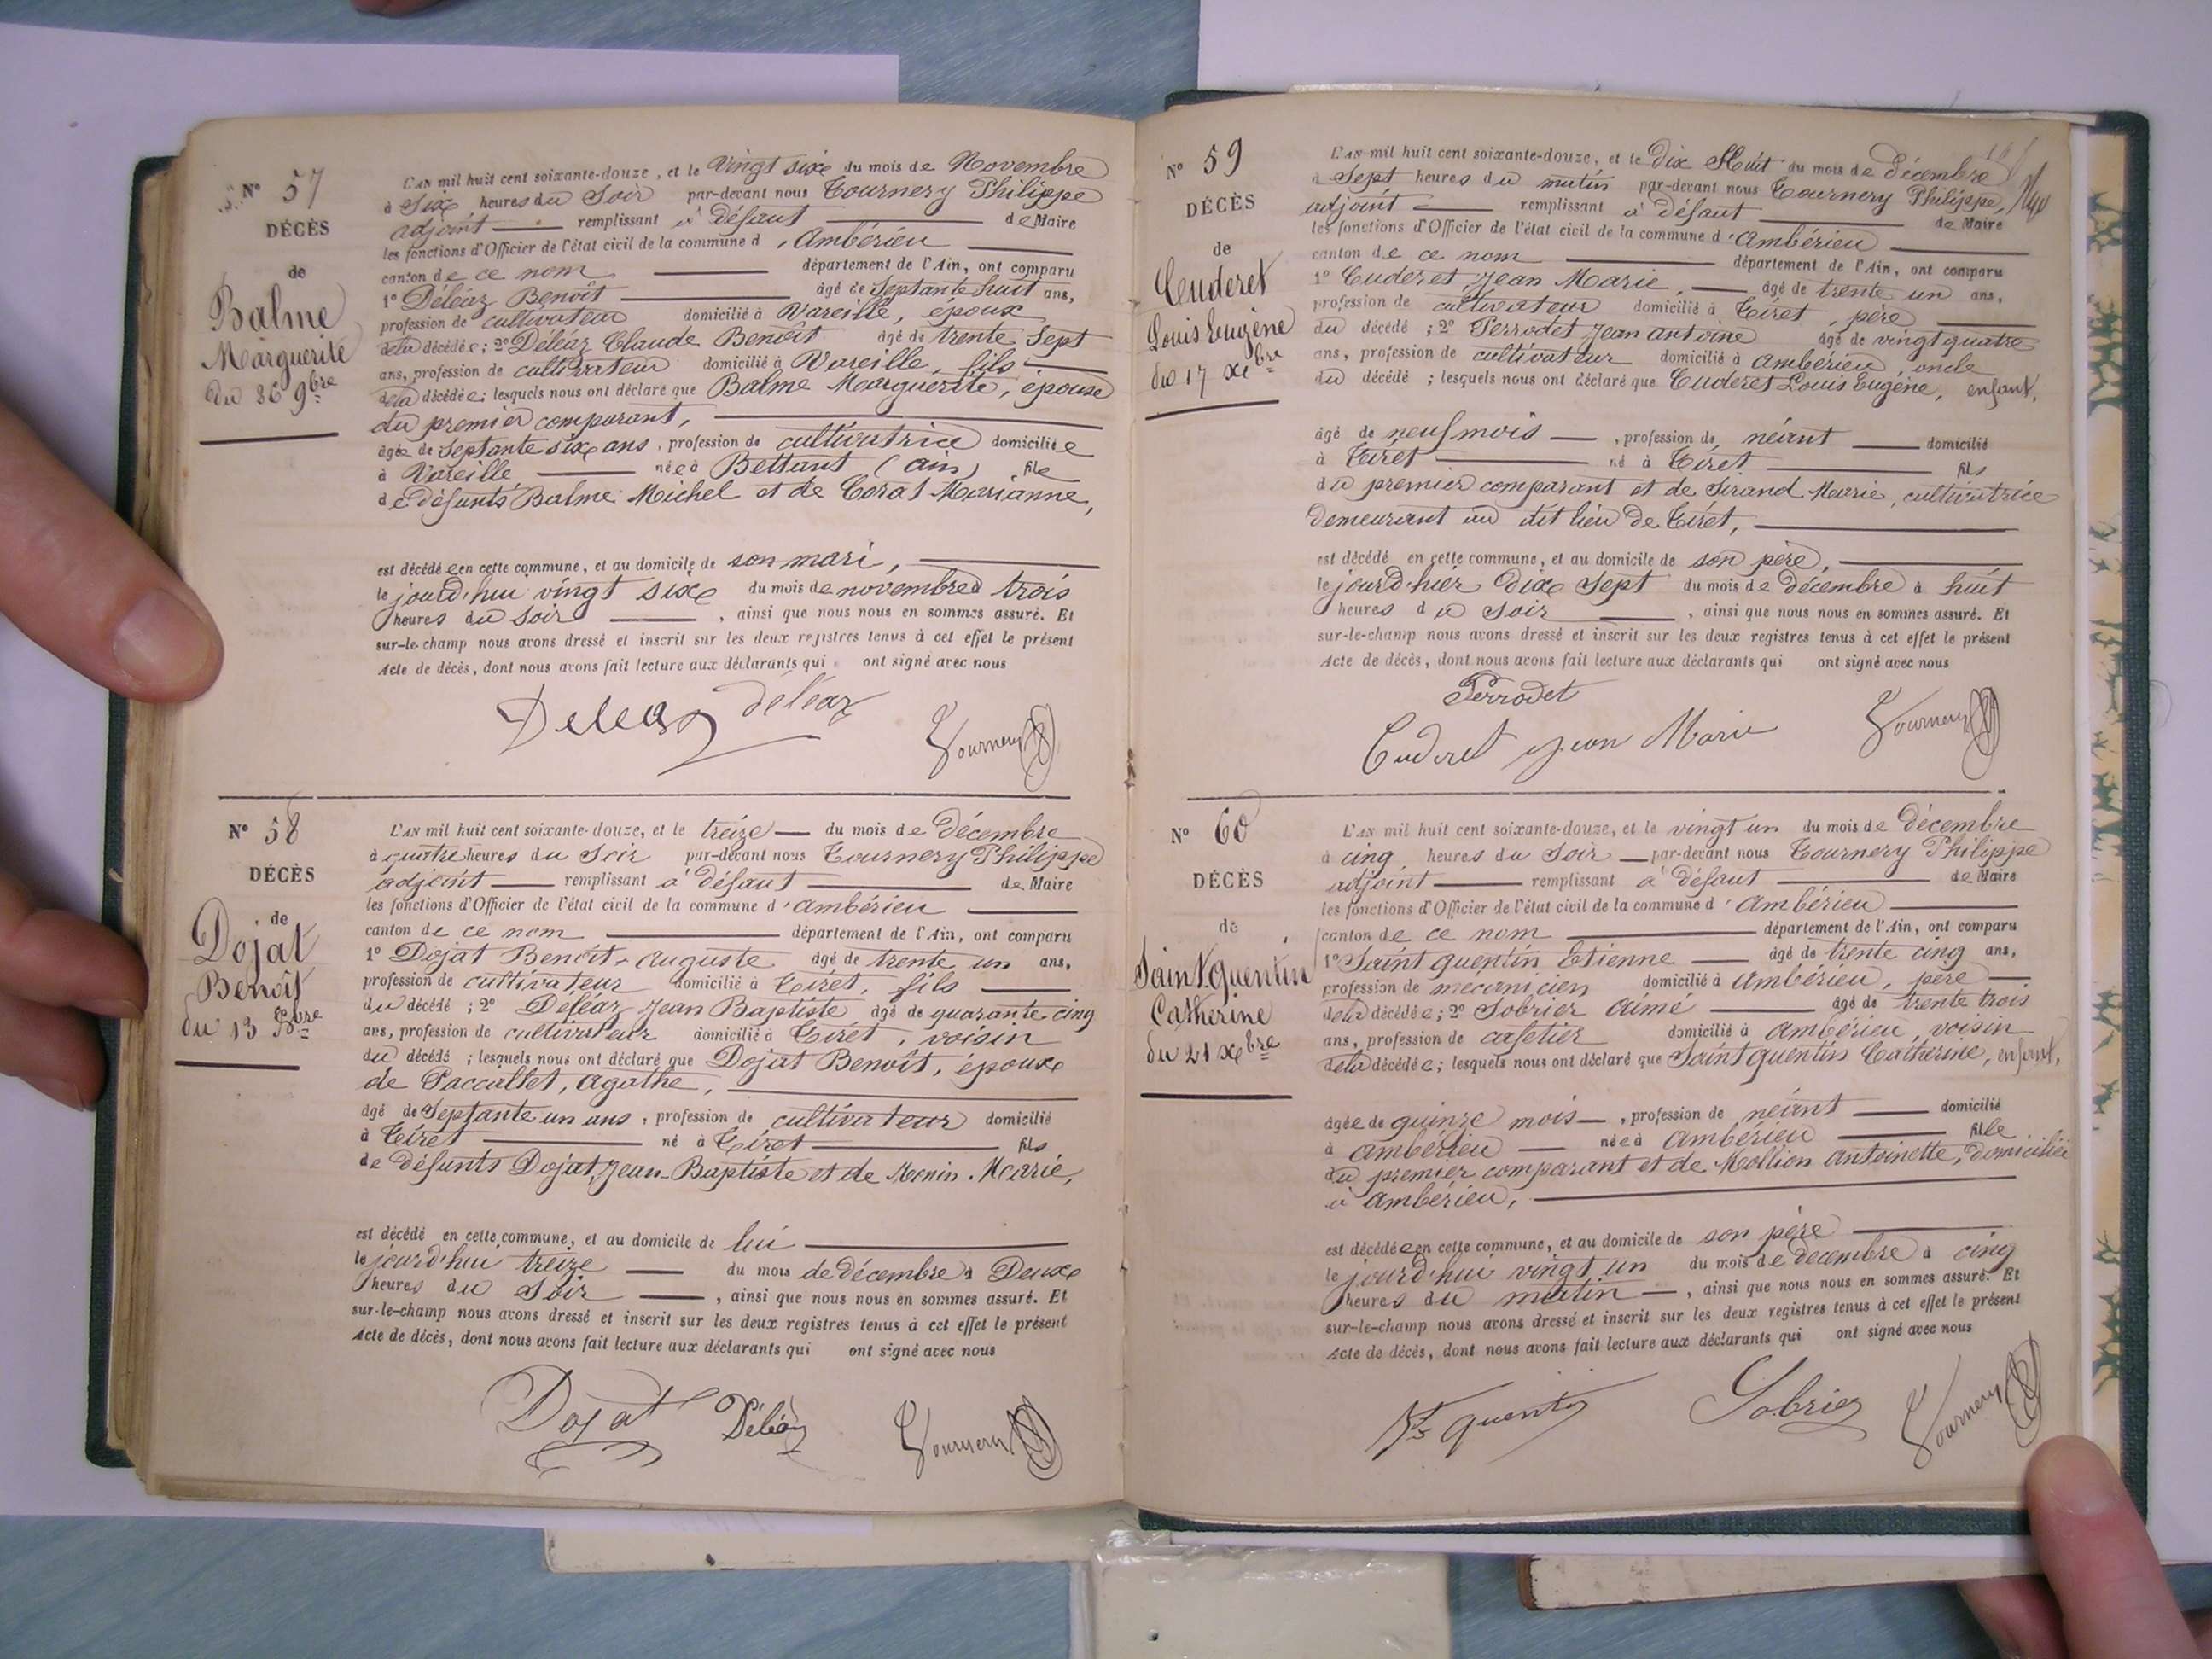 N° 57
DÉCÈS
de
Balme
Marguerite
du 26 9bre
L'AN mil huit cent soixante-douze, et le Vingt six du mois de Novembre
à Six heures du Soir par-devant nous Tournery Philippe
adjoint remplissant à défaut de Maire
les fonctions d'Officier de l'état civil de la commune d'Ambérieu
canton de ce nom département de l'Ain, ont comparu
1° Déléaz Benoît âgé de Septante huit ans,
profession de cultivateur domicilié à Vareille, époux
de la décédée; 2° Déléaz Claude Benoît âgé de trente Sept
ans, profession de cultivateur domicilié à Vareille, fils
de la décédée; lesquels nous ont déclaré que Balme Marguerite, épouse
du premier comparant,
âgée de Septante six ans, profession de cultivatrice domiciliée
à Vareille née à Bettant (ain) fille
de défunts Balme Michel et de Corat Marianne,
est décédée en cette commune, et au domicile de son mari,
le jourd'hui vingt six du mois de novembre à trois
heures du Soir, ainsi que nous nous en sommes assuré. Et
sur-le-champ nous avons dressé et inscrit sur les deux registres tenus à cet effet le présent
Acte de décès, dont nous avons fait lecture aux déclarants qui ont signé avec nous
Deleaz déléaz Tournery
N° 58
DÉCÈS
de
Dojat
Benoît
du 13 Xbre
L'AN mil huit cent soixante-douze, et le treize du mois de Décembre
à quatre heures du Soir par-devant nous Tournery Philippe
adjoint remplissant à défaut de Maire
les fonctions d'Officier de l'état civil de la commune d'Ambérieu
canton de ce nom département de l'Ain, ont comparu
1° Dojat Benoît-Auguste âgé de trente un ans,
profession de cultivateur domicilié à Tiret, fils
du décédé; 2° Deléaz Jean Baptiste âgé de quarante cinq
ans, profession de cultivateur domicilié à Tiret, voisin
du décédé; lesquels nous ont déclaré que Dojat Benoît, époux
de Paccallet, Agathe,
âgé de Septante un ans, profession de cultivateur domicilié
à Tiret né à Tiret fils
de défunts Dojat, Jean-Baptiste et de Monin Marie,
est décédé en cette commune, et au domicile de lui
le jourd'hui treize du mois de décembre à Deux
heures du Soir, ainsi que nous nous en sommes assuré. Et
sur-le-champ nous avons dressé et inscrit sur les deux registres tenus à cet effet le présent
Acte de décès, dont nous avons fait lecture aux déclarants qui ont signé avec nous
Dojat Déléaz Tournery
N° 59
DÉCÈS
de
Cuderet
Louis Eugène
du 17 Xbre
L'AN mil huit cent soixante-douze, et le Dix Huit du mois de Décembre
à Sept heures du matin par-devant nous Tournery Philippe,
adjoint remplissant à défaut de Maire
les fonctions d'Officier de l'état civil de la commune d'Ambérieu
canton de ce nom département de l'Ain, ont comparu
1° Cuderet, Jean Marie, âgé de trente un ans,
profession de cultivateur domicilié à Tiret, père
du décédé; 2° Perrodet Jean antoine âgé de vingt quatre
ans, profession de cultivateur domicilié à Ambérieu, oncle
du décédé; lesquels nous ont déclaré que Cuderet Louis Eugène, enfant,
âgé de neuf mois, profession de néant domicilié
à Tiret né à Tiret fils
du premier comparant et de Sirand Marie, cultivatrice
demeurant au dit lieu de Tiret,
est décédé en cette commune, et au domicile de son père,
le jourd'hier Dix Sept du mois de Décembre à huit
heures du Soir, ainsi que nous nous en sommes assuré. Et
sur-le-champ nous avons dressé et inscrit sur les deux registres tenus à cet effet le présent
Acte de décès, dont nous avons fait lecture aux déclarants qui ont signé avec nous
Perrodet
Cuderet Jean Marie Tournery
N° 60
DÉCÈS
de
Saint Quentin
Catherine
du 21 Xbre
L'AN mil huit cent soixante-douze, et le vingt un du mois de Décembre
à cinq heures du Soir par-devant nous Tournery Philippe
adjoint remplissant à défaut de Maire
les fonctions d'Officier de l'état civil de la commune d'Ambérieu
canton de ce nom département de l'Ain, ont comparu
1° Saint quentin Etienne âgé de trente cinq ans,
profession de mécanicien domicilié à Ambérieu, père
de la décédée; 2° Sobrier Aimé âgé de trente trois
ans, profession de cafetier domicilié à Ambérieu, voisin
de la décédée; lesquels nous ont déclaré que Saint quentin Catherine, enfant,
âgée de quinze mois, profession de néant domicilié
à Ambérieu née à Ambérieu fille
du premier comparant et de Mollion Antoinette, domiciliée
à Ambérieu,
est décédée en cette commune, et au domicile de son père
le jourd'hui vingt un du mois de décembre à cinq
heures du matin, ainsi que nous nous en sommes assuré. Et
sur-le-champ nous avons dressé et inscrit sur les deux registres tenus à cet effet le présent
Acte de décès, dont nous avons fait lecture aux déclarants qui ont signé avec nous
St quentin Sobrier Tournery